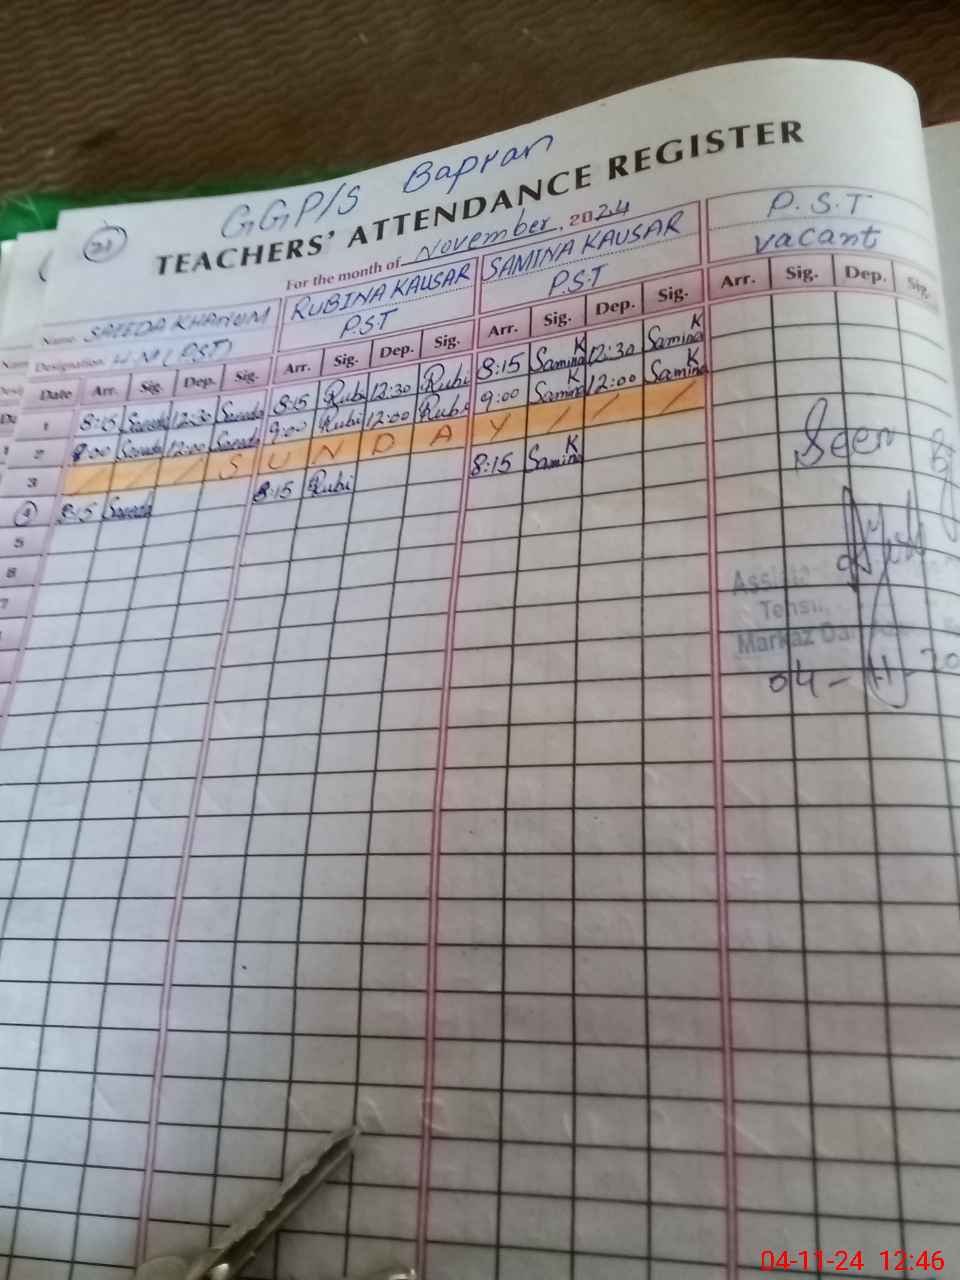 GGP/S Bapran
21
TEACHERS' ATTENDANCE REGISTER
For the month of November, 2024
Name. SAEEDA KHANUM RUBINA KAUSAR SAMINA KAUSAR P.S.T
Designation. H.M (PST) P.S.T P.S.T vacant
Date Arr. Sig. Dep. Sig. Arr. Sig. Dep. Sig. Arr. Sig. Dep. Sig. Arr. Sig. Dep. Sig.
1 8:15 Saeeda 12:30 Saeeda 8:15 Rubi 12:30 Rubi 8:15 Samina K 12:30 Samina K
2 9:00 Saeeda 12:00 Saeeda 9:00 Rubi 12:00 Rubi 9:00 Samina K 12:00 Samina K
3 / / / S U N D A Y / / /
4 8:15 Saeeda 8:15 Rubi 8:15 Samina K
5
6
7
Seen By
Markaz
04-11-20
04-11-24 12:46